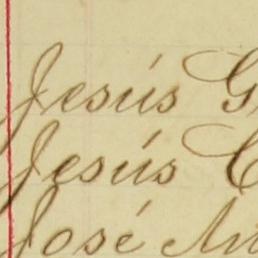 Jesús G
Jesús C
José An